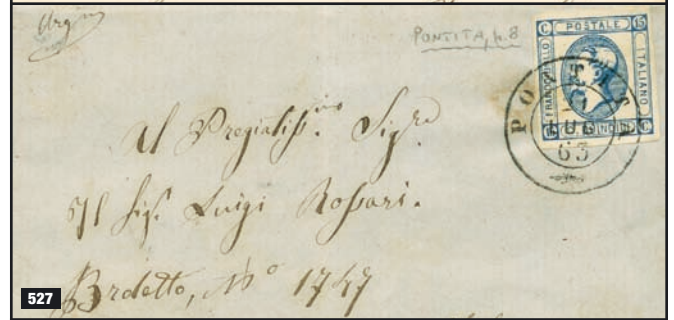 Urg
PONTITA, p.8
C POSTALE 15
FRANCOBOLLO
ITALIANO
15 QUINDICI C
PONTITA
1
LUG
63
Al Pregiatiss.mo Sigre
Il Sigr. Luigi Rossari.
No 1747
527